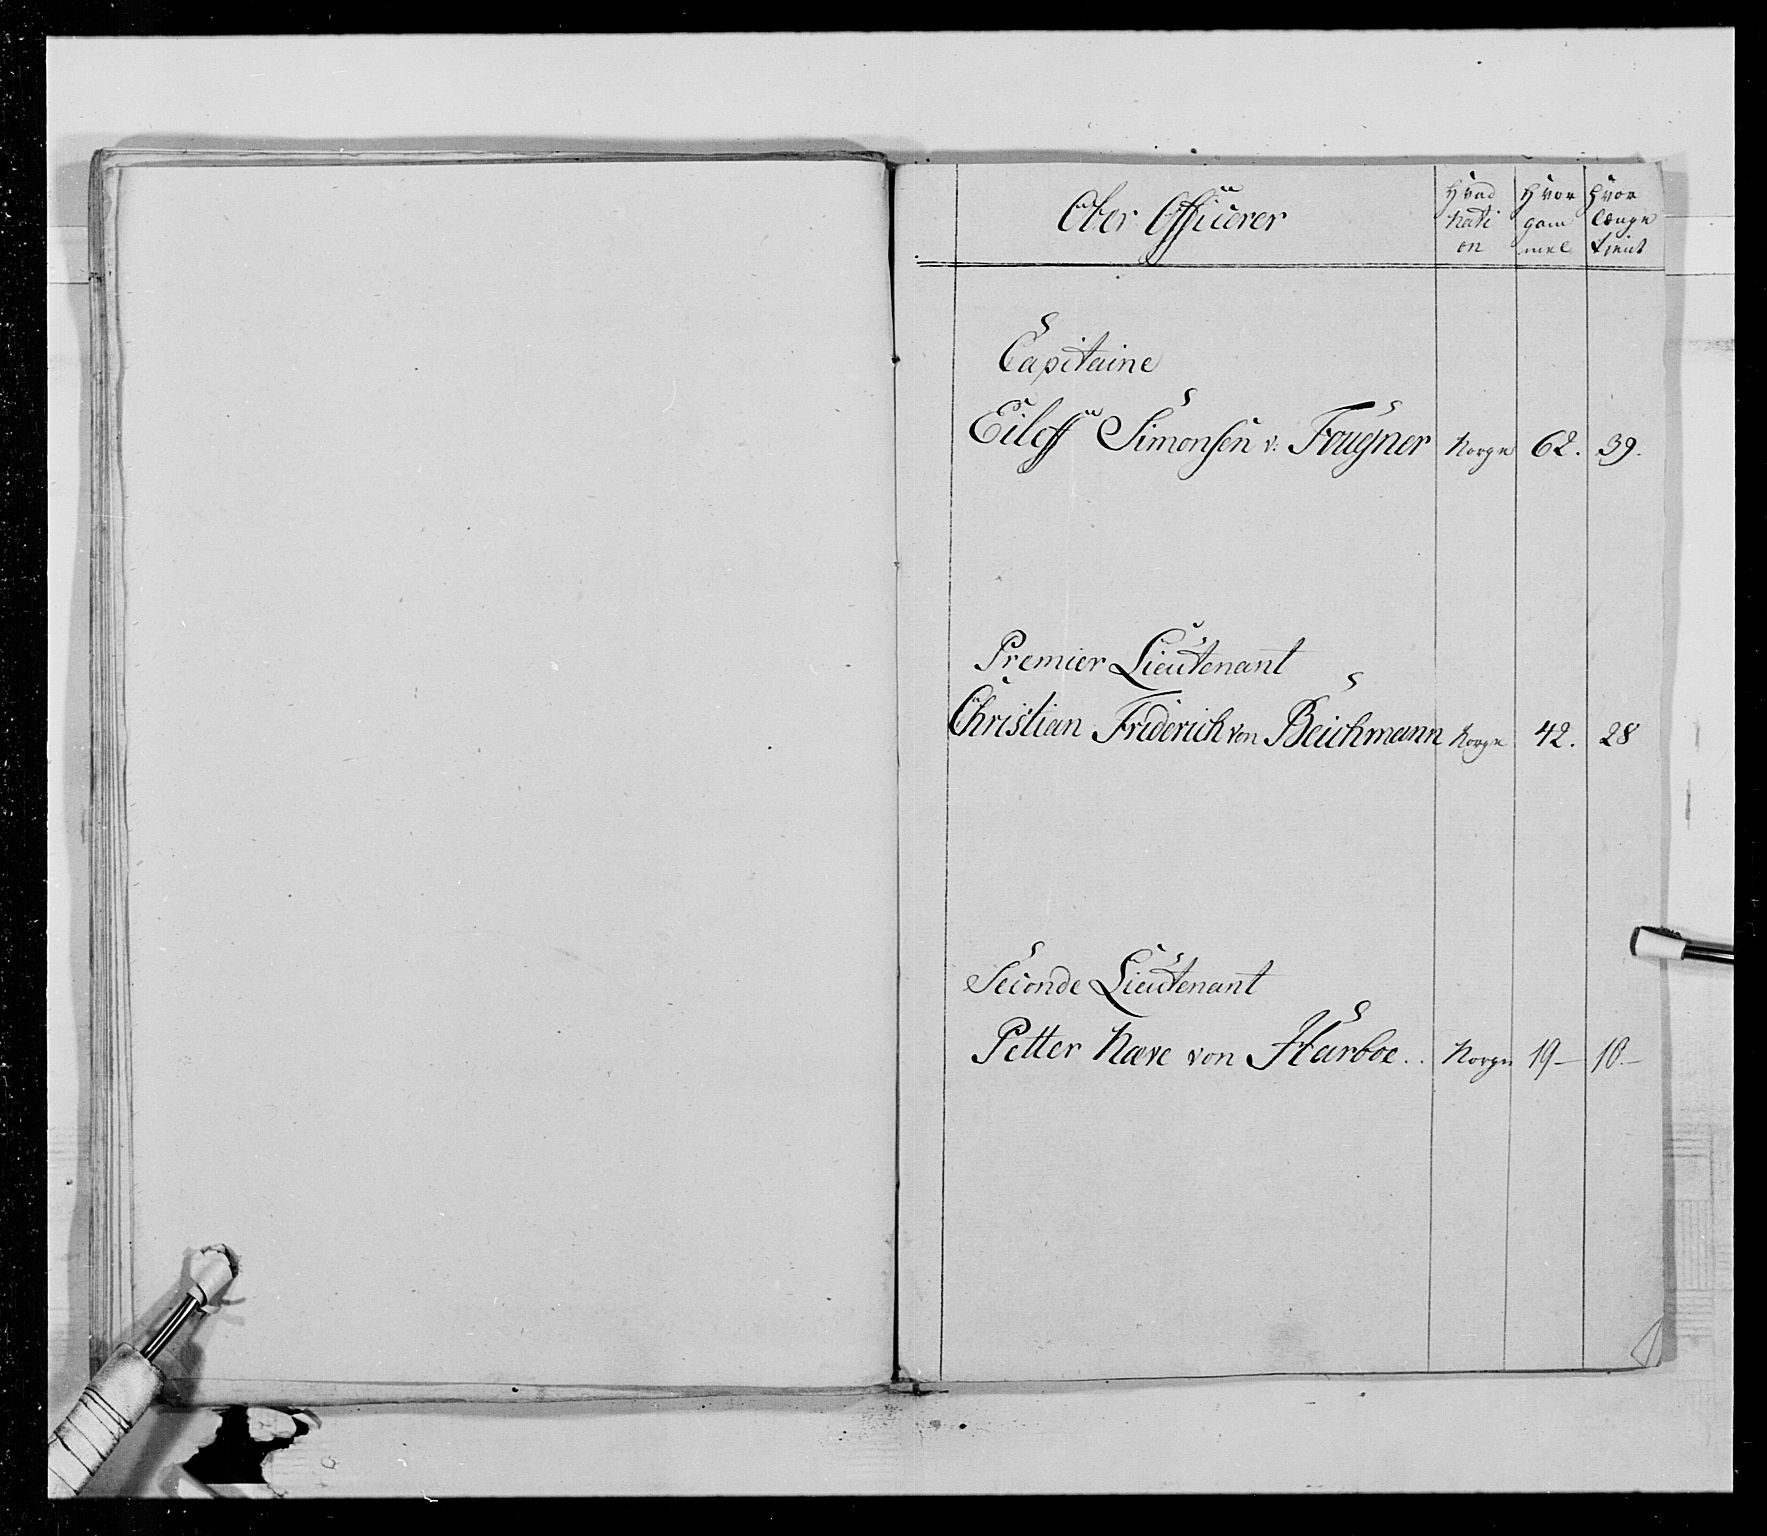 Ober Officerer
Hvad Nati on
Hvor gam mel
Hvor længe tient
Capitaine
Eiloff Simonsen v: Fougner Norge 62. 39.
Premier Lieutenant
Christian Friderich von Beichmann Norge 42. 28
Seconde Lieutenant
Petter Næve von Harboe.. Norge 19- 10.-